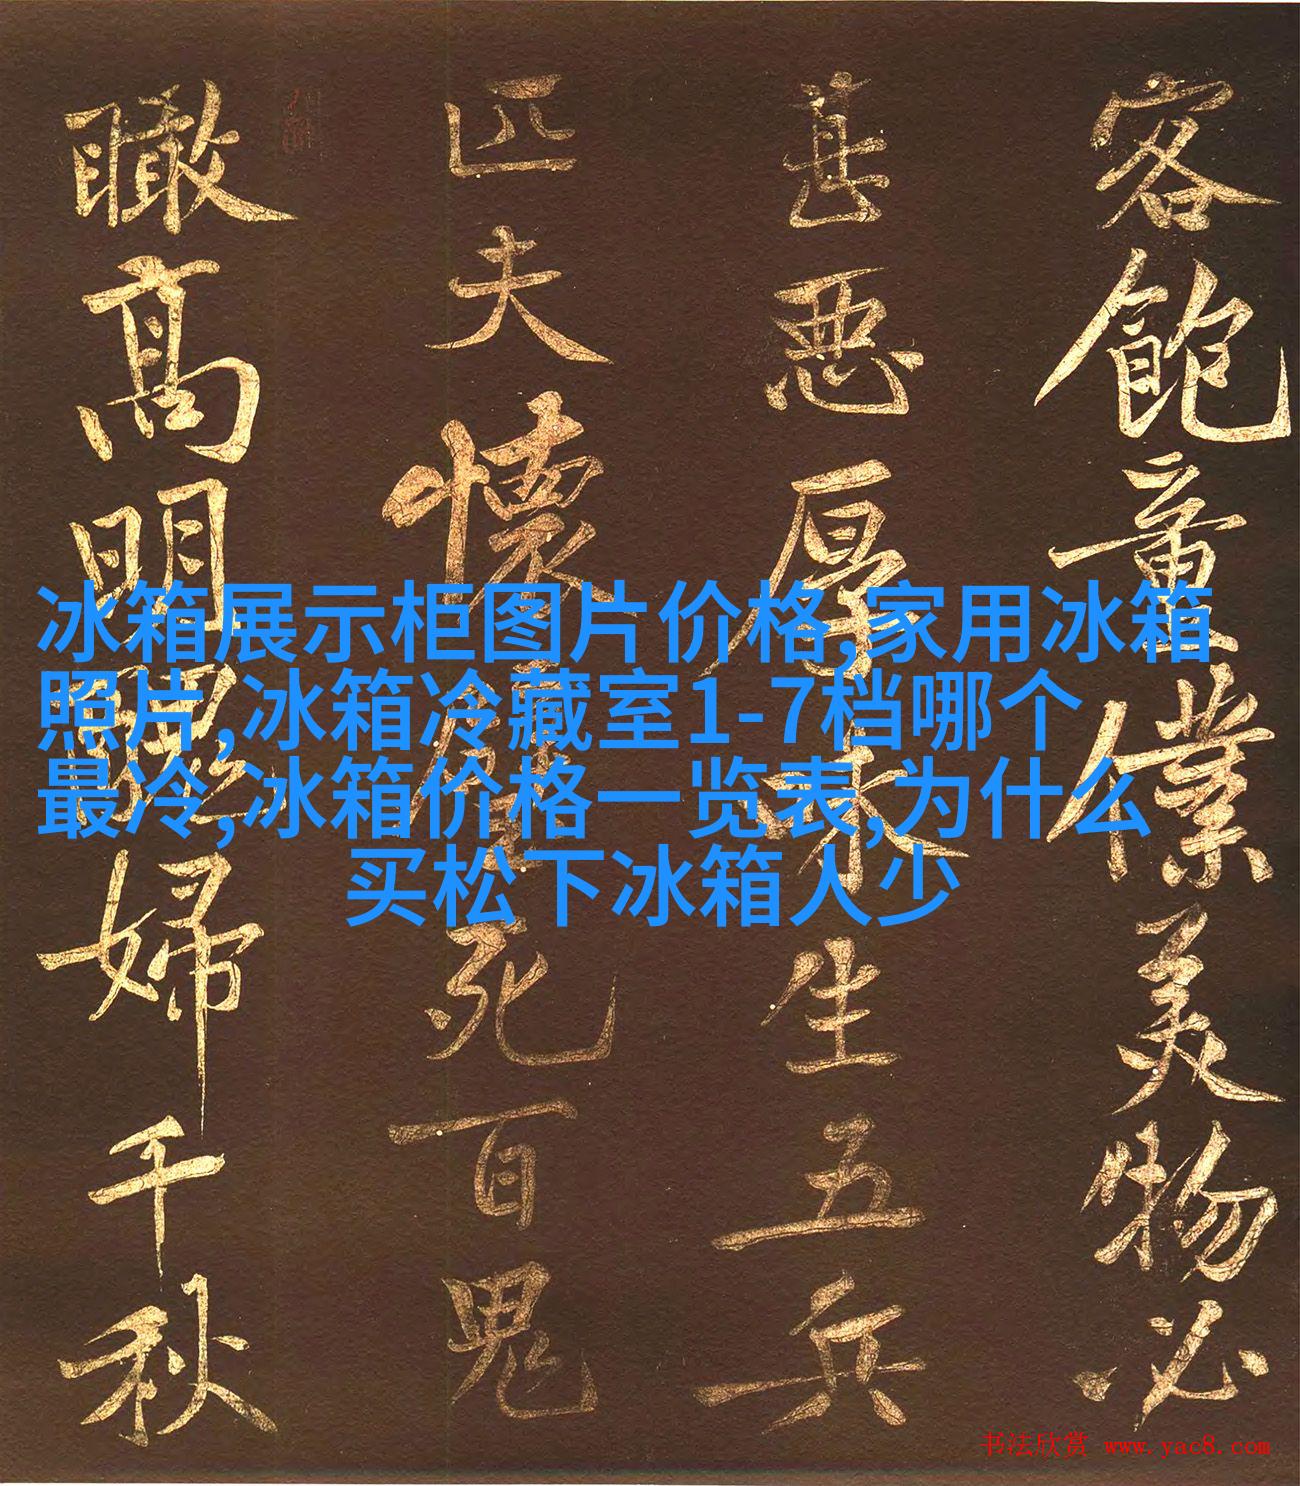 冰箱展示柜图片价格,家用冰箱
照片,冰箱冷藏室1-7档哪个
最冷,冰箱价格一览表,为什么
买松下冰箱人少
客飽童僕美物必
甚惡厚味生五兵
匹夫懷死百鬼
瞰高明醜婦千秋
书法欣赏 www.yac8.com